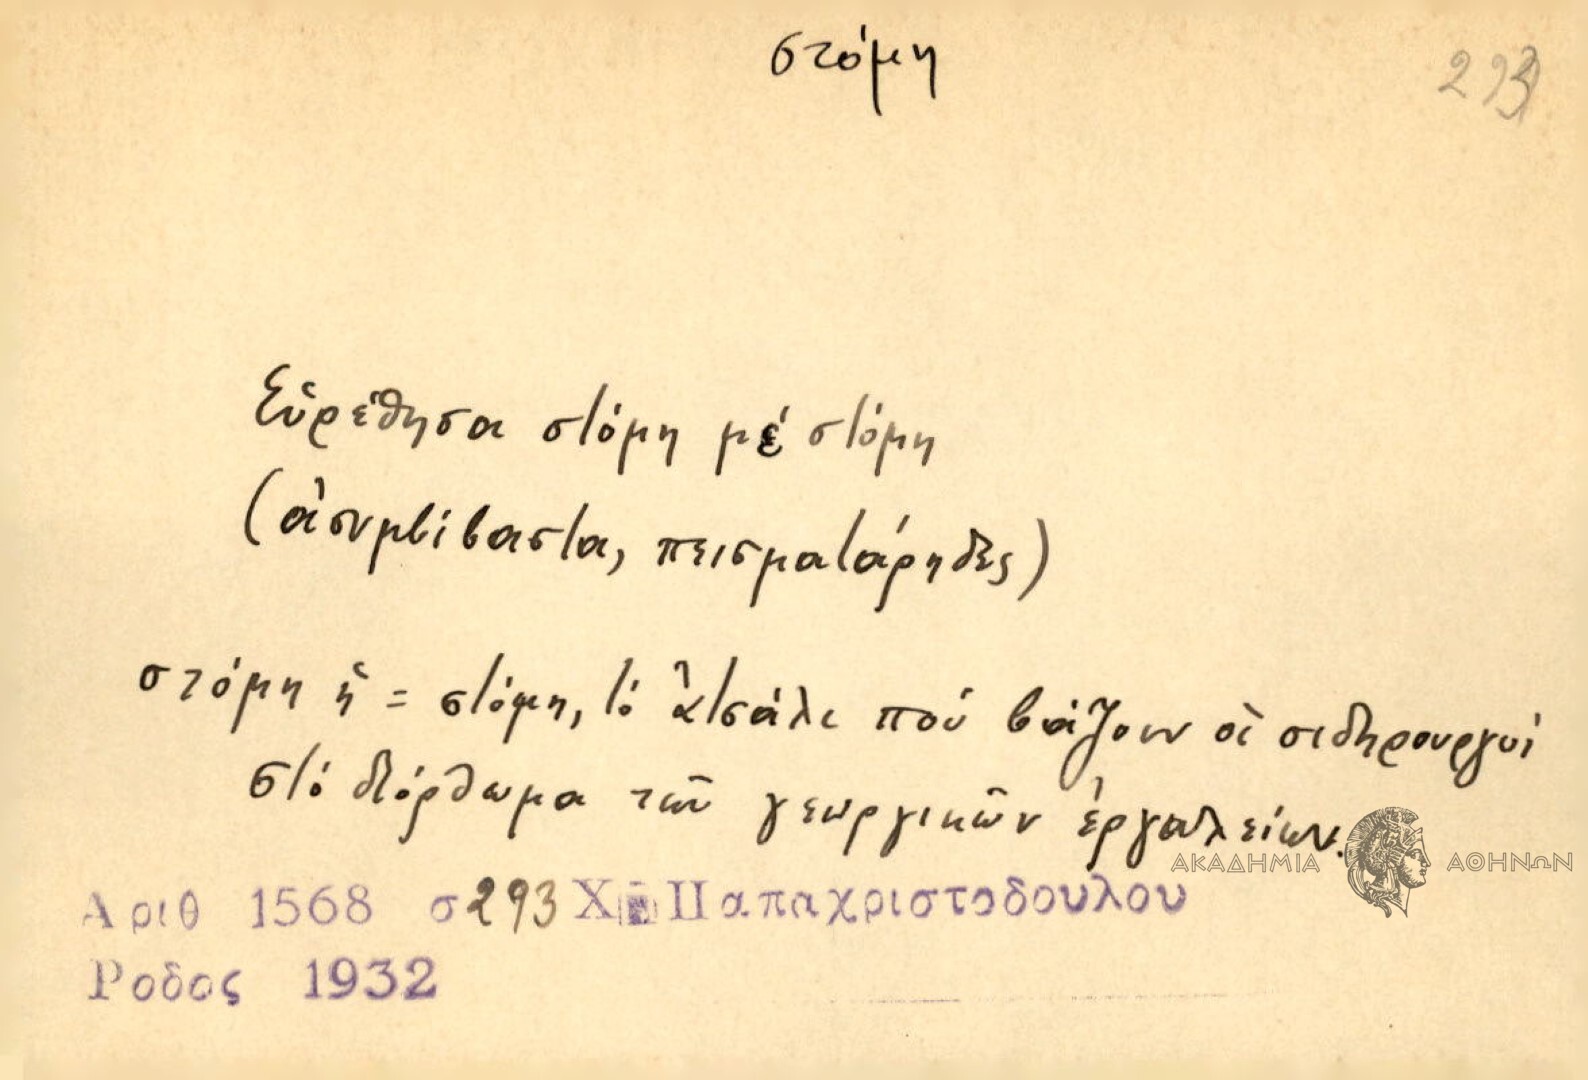 στόμη
293
Εὑρέθησα στόμη μέ στόμη
(ἀσυμβίβαστα, πεισματάρηδες)
στόμη ἡ = στόμη, τό ἀτσάλι πού βάζουν οἱ σιδηρουργοί
στό διόρθωμα τῶν γεωργικῶν ἐργαλείων.
ΑΚΑΔΗΜΙΑ ΑΘΗΝΩΝ
Αριθ 1568 σ293 Χ Παπαχριστοδουλου
Ροδος 1932